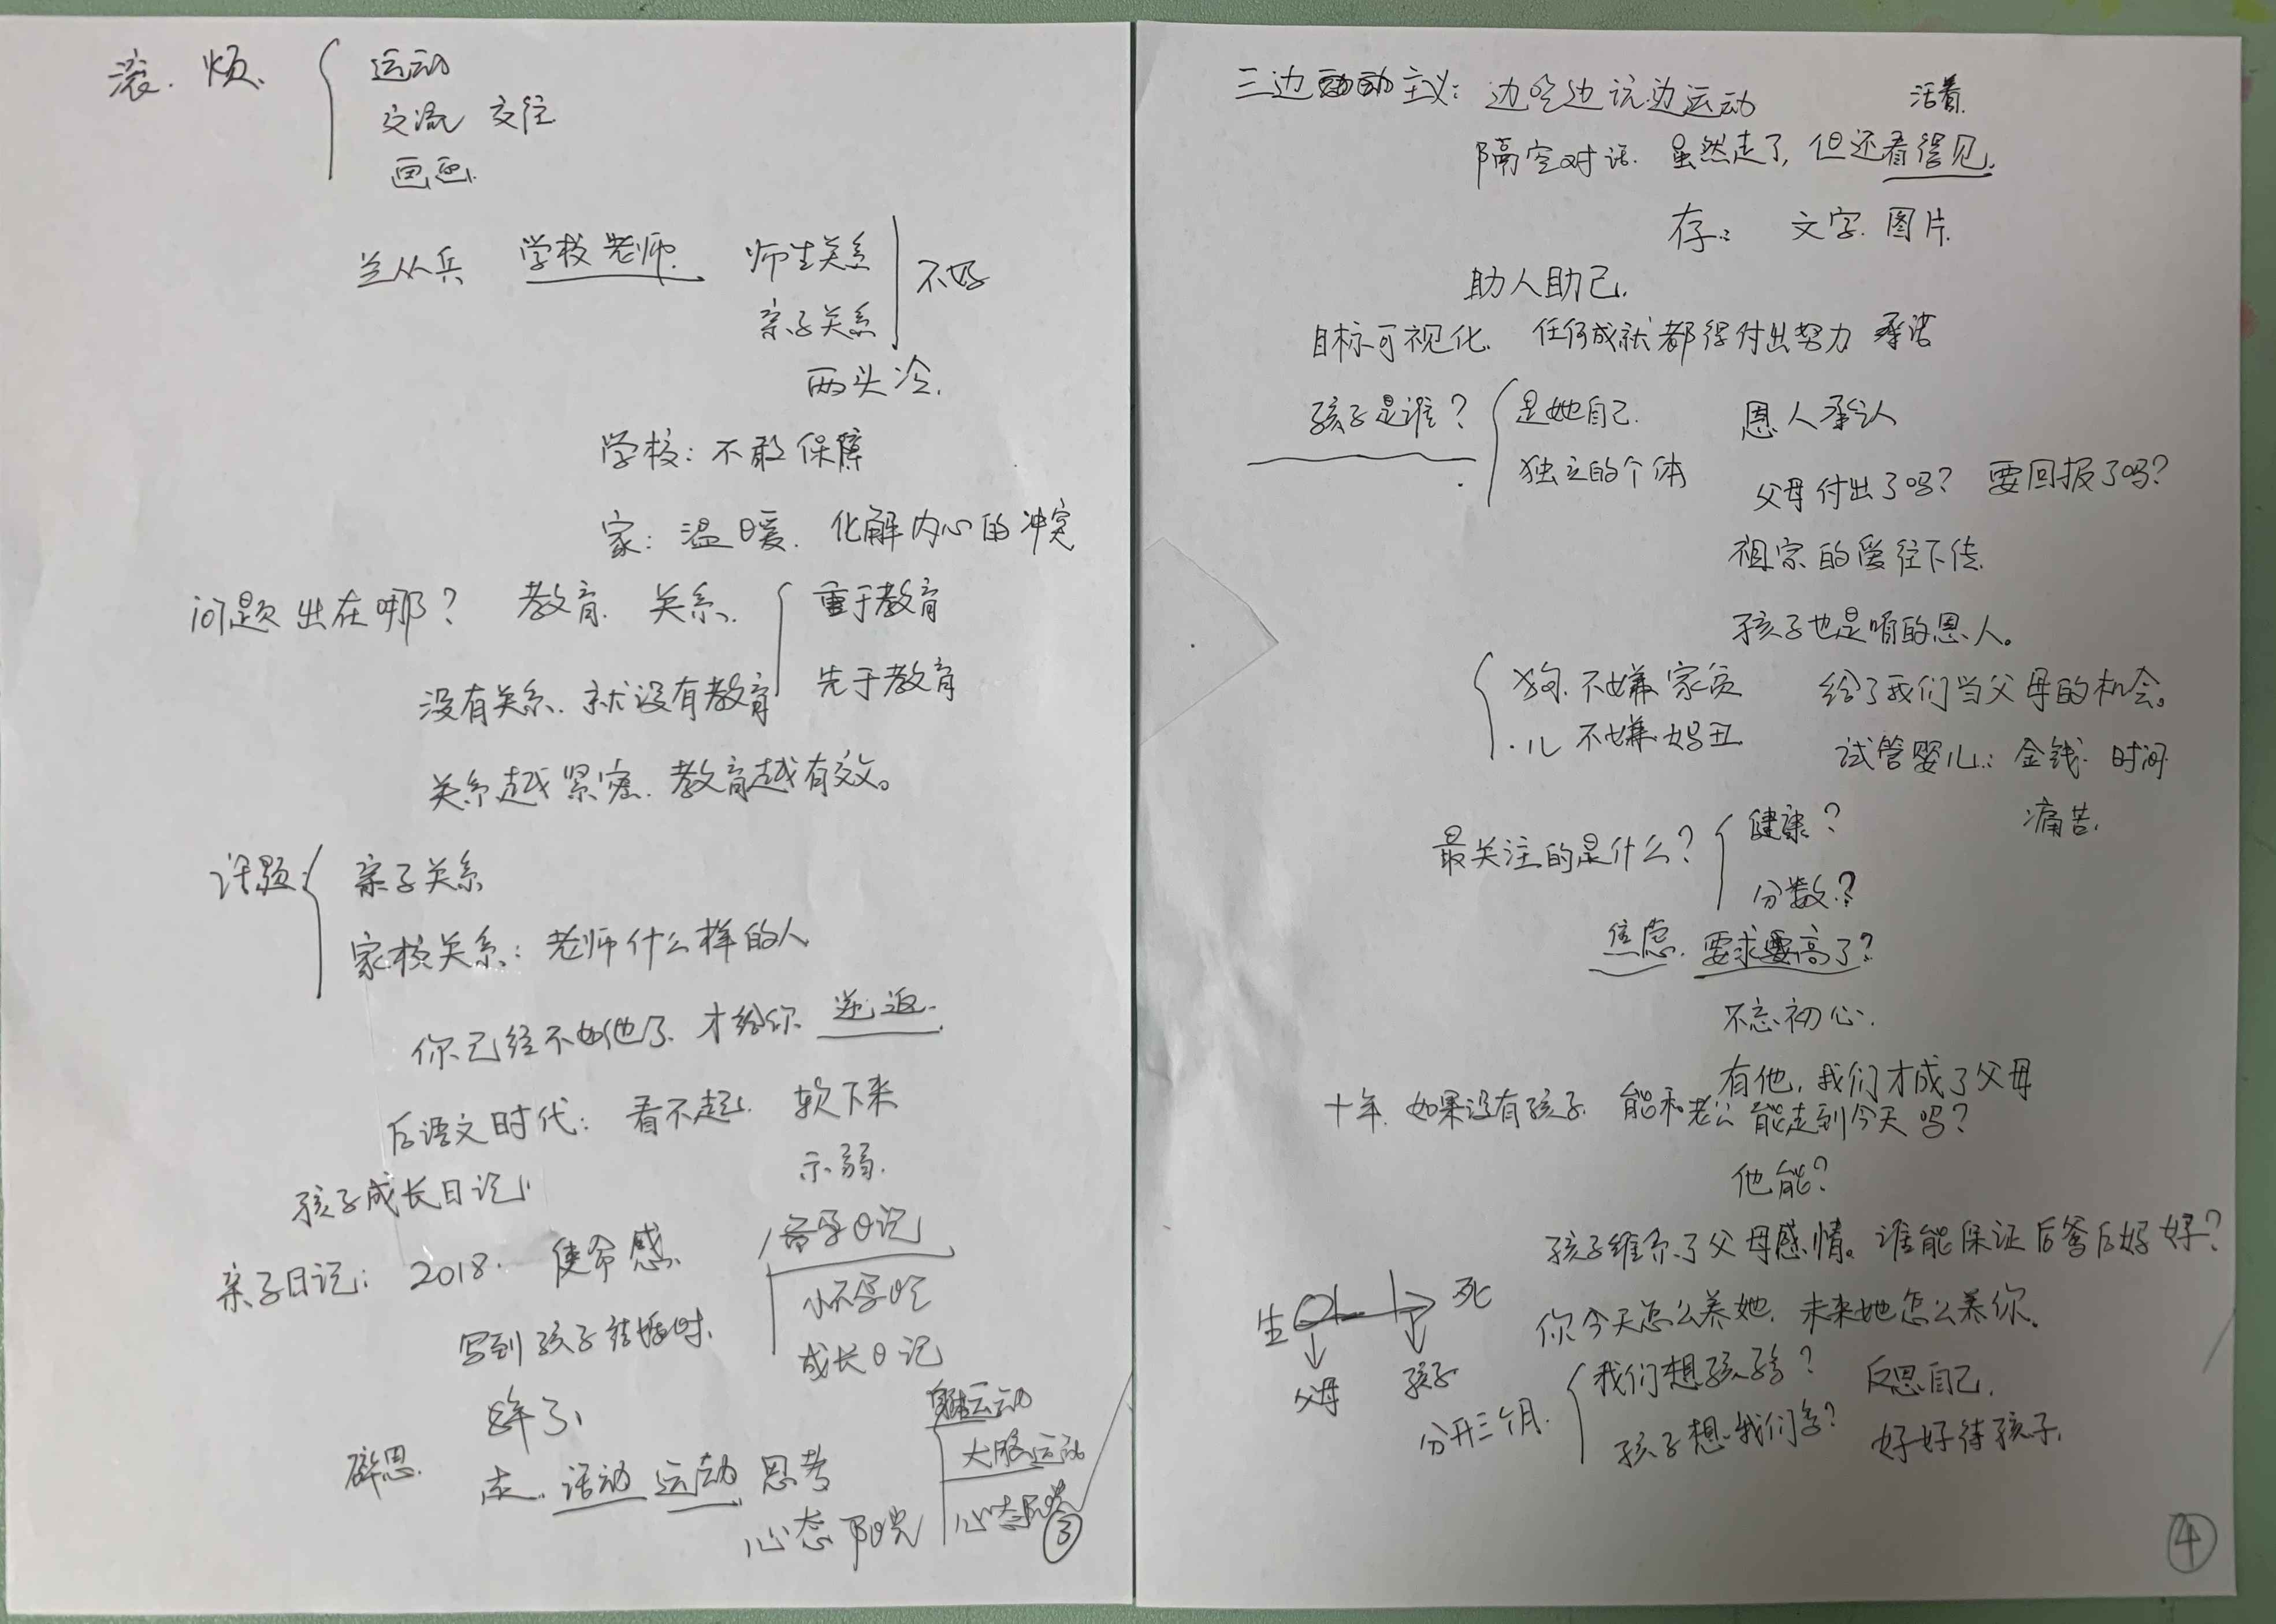 滚、烦、 运动
交流 交往
画画
学校老师 师生关系 不好
亲子关系
两头冷.
学校：不敢保障
家：温暖. 化解内心的冲突
问题出在哪？ 教育. 关系. 重于教育
没有关系. 就没有教育 先于教育
关系越紧密. 教育越有效。
话题 亲子关系
家校关系：老师什么样的人
你已经不如他了. 才给你
后语文时代：看不起 软下来
示弱.
孩子成长日记
亲子日记：2018. 使命感. 日记
写到孩子结婚时.
成长日记
大脑运动
走. 活动 运动 思考
心态阳光
③
三边 主义：边 边说边运动 活着.
隔空对话. 虽然走了，但还看得见.
存： 文字. 图片.
助人助己.
目标可视化. 任何成就都得付出努力 承诺
孩子是谁？ 是她自己. 恩人
独立的个体 父母付出了吗？ 要回报了吗？
祖宗的爱往下传.
孩子也是咱的恩人。
狗不嫌家贫 给了我们当父母的机会。
儿不嫌妈丑 试管婴儿：金钱. 时间
痛苦.
最关注的是什么？ 健康？
分数？
焦虑. 要求 高了？
不忘初心.
有他，我们才成了父母
十年. 如果没有孩子. 能和老公能走到今天吗？
他能？
孩子维系了父母感情。谁能保证后爹后妈好？
生 死 你今天怎么养她，未来她怎么养你。
父母 孩子
分开三个月. 我们想孩子多？ 反思自己.
孩子想我们多？ 好好待孩子.
④